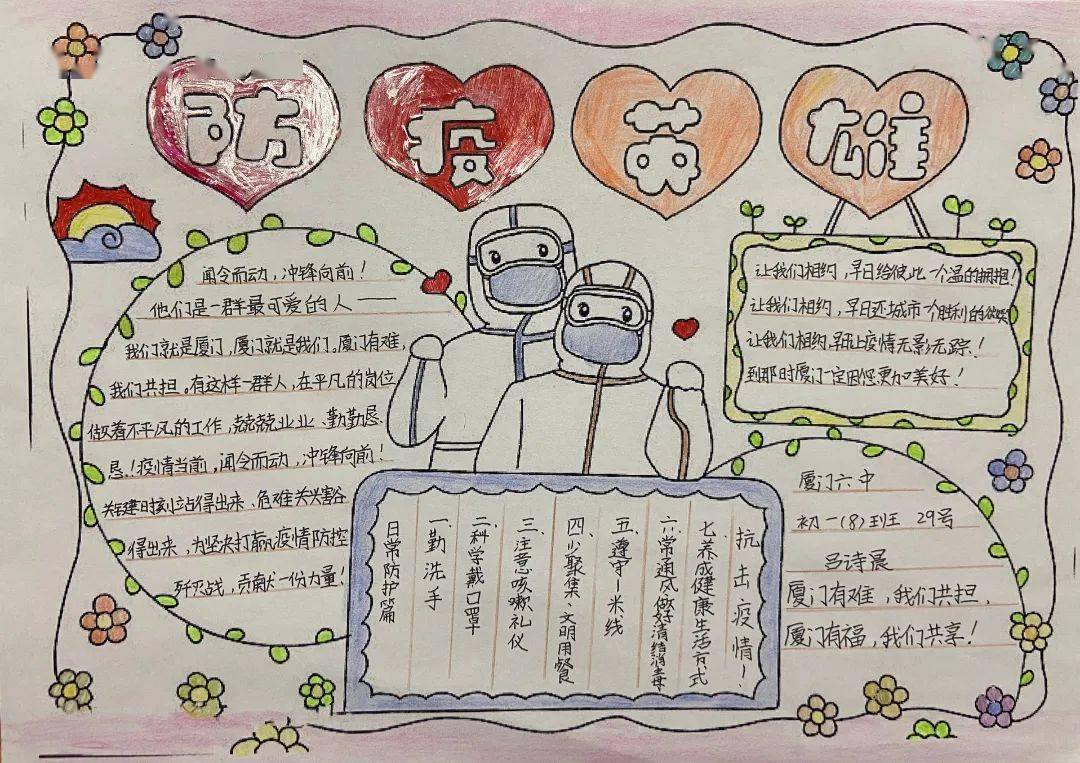 防疫英雄
闻令而动，冲锋向前！
他们是一群最可爱的人——
我们就是厦门，厦门就是我们。厦门有难，
我们共担。有这样一群人，在平凡的岗位
做着不平凡的工作，兢兢业业、勤勤恳
恳！疫情当前，闻令而动，冲锋向前！
关键时刻站得出来、危难关头豁
得出来，为坚决打赢疫情防控
歼灭战，贡献一份力量！
让我们相约，早日给彼此一个温的拥抱！
让我们相约，早日还城市一个胜利的微笑
让我们相约，早让疫情无影无踪！
到那时厦门一定因您更加美好！
日常防护篇
一、勤洗手
二、科学戴口罩
三、注意咳嗽礼仪
四、少聚集、文明用餐
五、遵守一米线
六、常通风做好清洁消毒
七、养成健康生活方式
抗击疫情！
厦门六中
初一(8)班 29号
吕诗晨
厦门有难，我们共担，
厦门有福，我们共享！